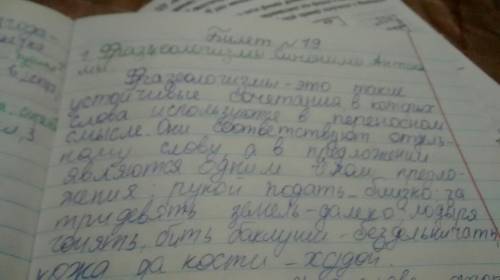 Билет №19
1. Фразеологизмы синонимы Антони
мы.
Фразеологизмы - это такие
устойчивые сочетания в которых
слова используются в переносном
смысле. Они соответствуют отдель-
ному слову, а в предложении
являются одним членом предло-
жения: рукой подать - близко, за
тридевять земель - далеко, лодыря
гонять, бить баклуши - бездельничать
кожа да кости - худой